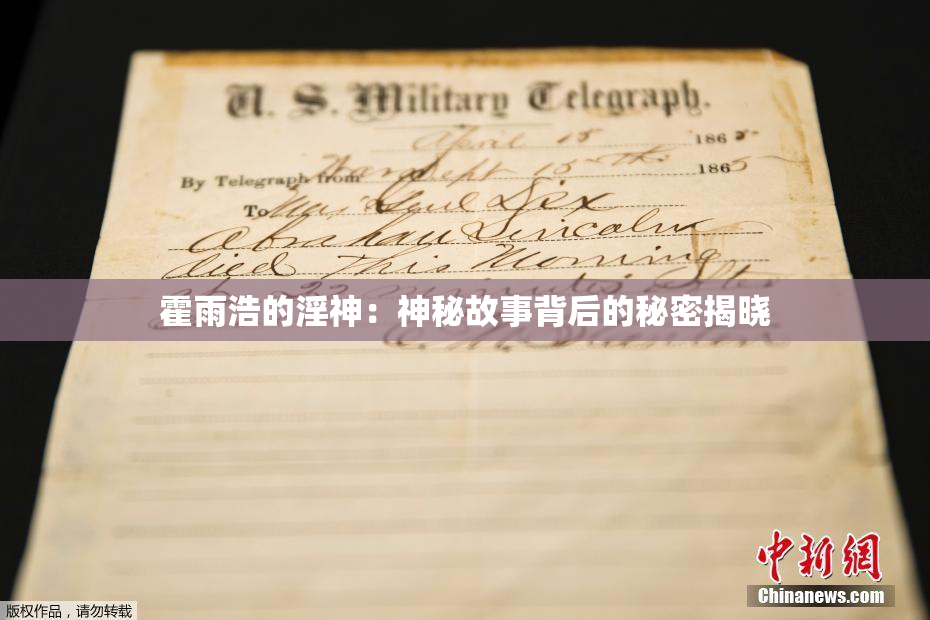 U. S. Military Telegraph.
April 15 1865
By Telegraph from War Dept 15th 1865
To Maj Genl Dix
Abraham Lincoln
died This Morning
at 22 minutes after
霍雨浩的淫神：神秘故事背后的秘密揭晓
E. M. Stanton
中新网
Chinanews.com
版权作品，请勿转载